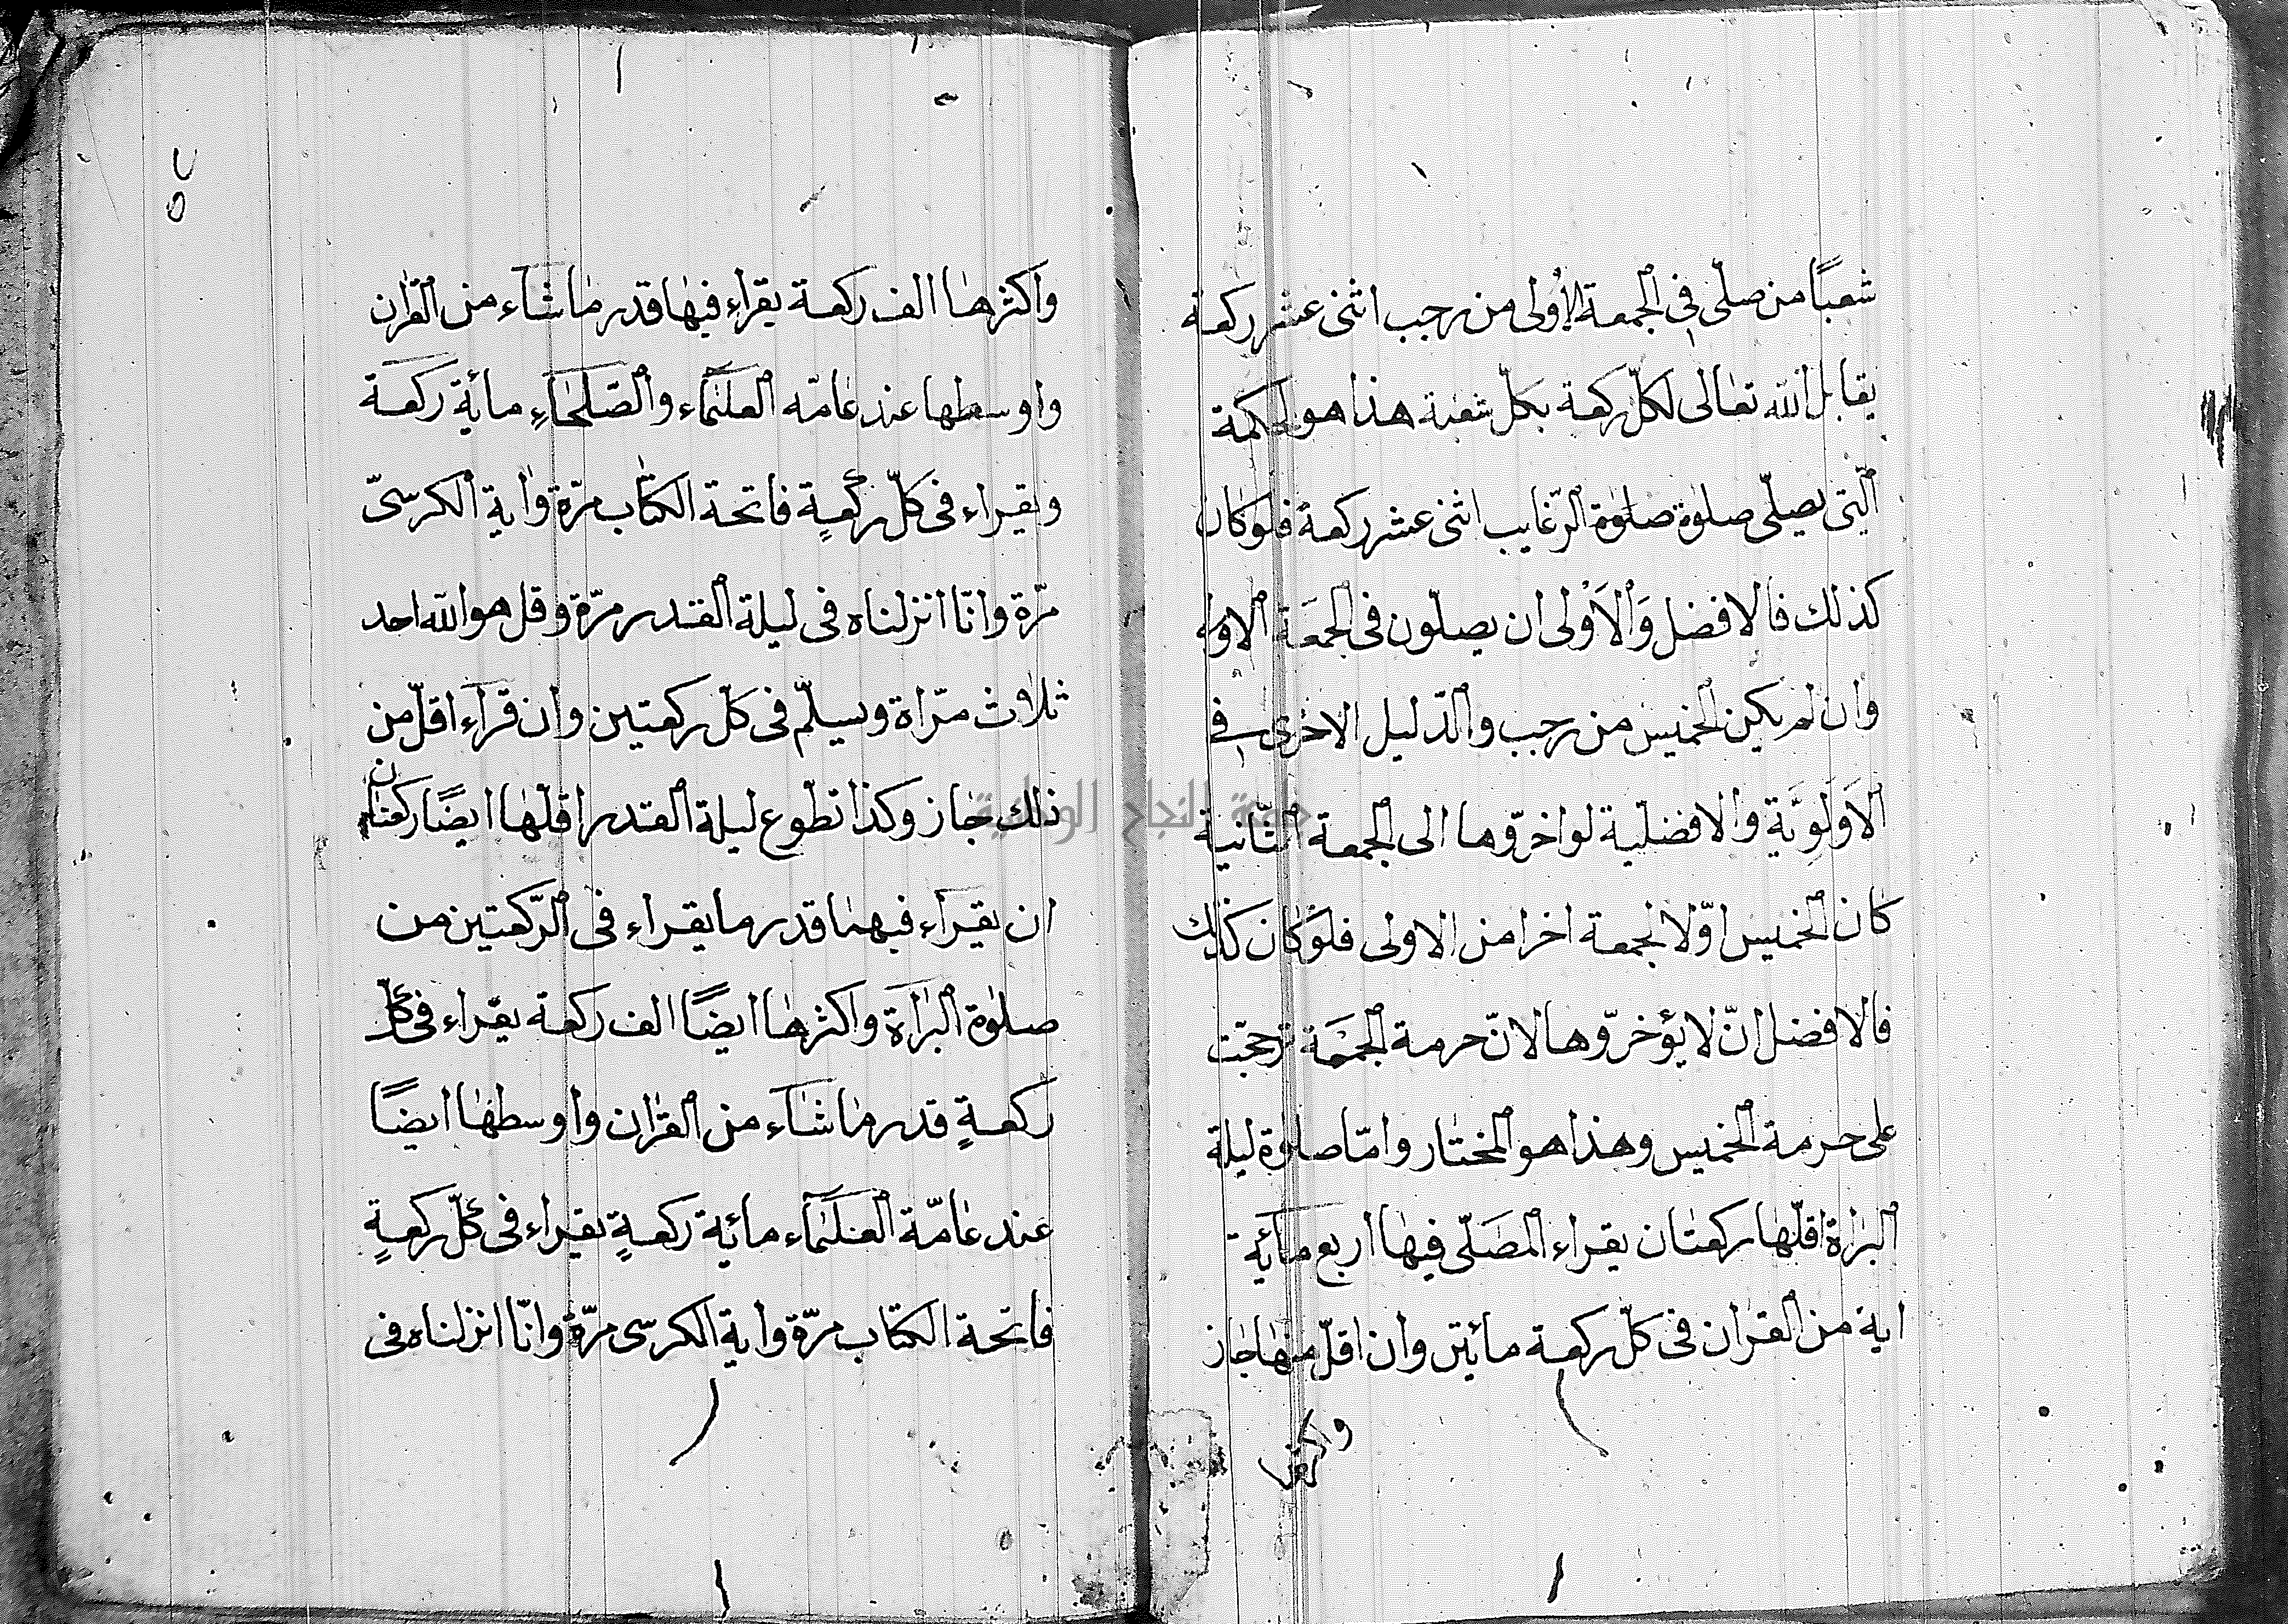 شعبًا من صلّى فى الجمعة الأولى من رجب اثنى عشر ركعة
يقابل الله تعالى لكلّ ركعة بكلّ شعبة هذا هو الحكمة
الّتى يصلّى صلوة صلوة الرّغايب اثنى عشر ركعة فلو كان
كذلك فالافضل والاَوْلى ان يصلّون فى الجمعَة الاولى
وان لم يكن الخميس من رجب والدّليل الاخرى فى
الاَولَوِيَّة والافضليّة لو اخرّوها الى الجمعة الثّانية
كان الخميس اوّلا لجمعة اخرا من الاولى فلو كان كذلك
فالافضل انّ لا يؤخرّوها لانّ حرمة الجمعَة ترجحّت
على حرمة الخميس وهذا هو المختار وامّا صلوة ليلة
البراة اقلّها ركعتان يقراء المصَلّى فيها اربع مائَة
اية من القران فى كلّ ركعة مائتين وان اقلّ منها جاز
واكثرها
واكثرها الف ركعة يقراء فيها قدر ما شآء من القران
واوسطها عند عامّه العلمآء والصّلحآءِ مائة ركعَة
ويقراء فى كلّ ركعةٍ فاتحة الكتاب مرّة واية الكرسىّ
مرّة وانّا انزلناه فى ليلة القدر مرّة وقل هو الله احد
ثلاث مرّاة ويسلّم فى كلّ ركعتين وان قرآء اقلّ من
ذلك جاز وكذا تطوّع ليلة القدر اقلّها ايضًا ركعتان
ان يقرآء فيهما قدر ما يقراء فى الرّكعتين من
صلوة البرآة واكثرها ايضًا الف ركعة يقراء فى كلّ
ركعةٍ قدر ما شآء من القران واوسطها ايضًا
عند عامّة العلمآء مائة ركعةٍ يقراء فى كلّ ركعةٍ
فاتحة الكتاب مرّة واية الكرسى مرّة وانّا انزلناه فى
٥٢
جامعة النجاح الوطنية